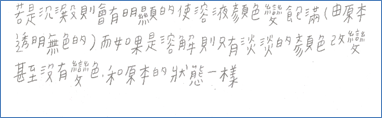 若是沉澱則會有明顯的使溶液顏色變飽滿(由原本
透明無色的)而如果是溶解則只有淡淡的顏色改變
甚至沒有變色.和原本的狀態一樣